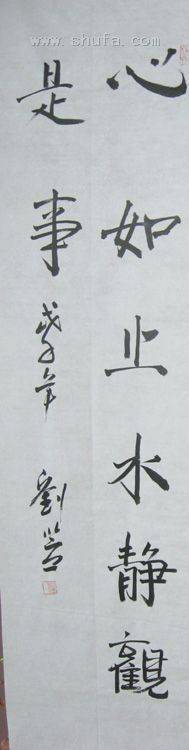 www.shufa.com
心如止水静觀
是事 戊子年 劉